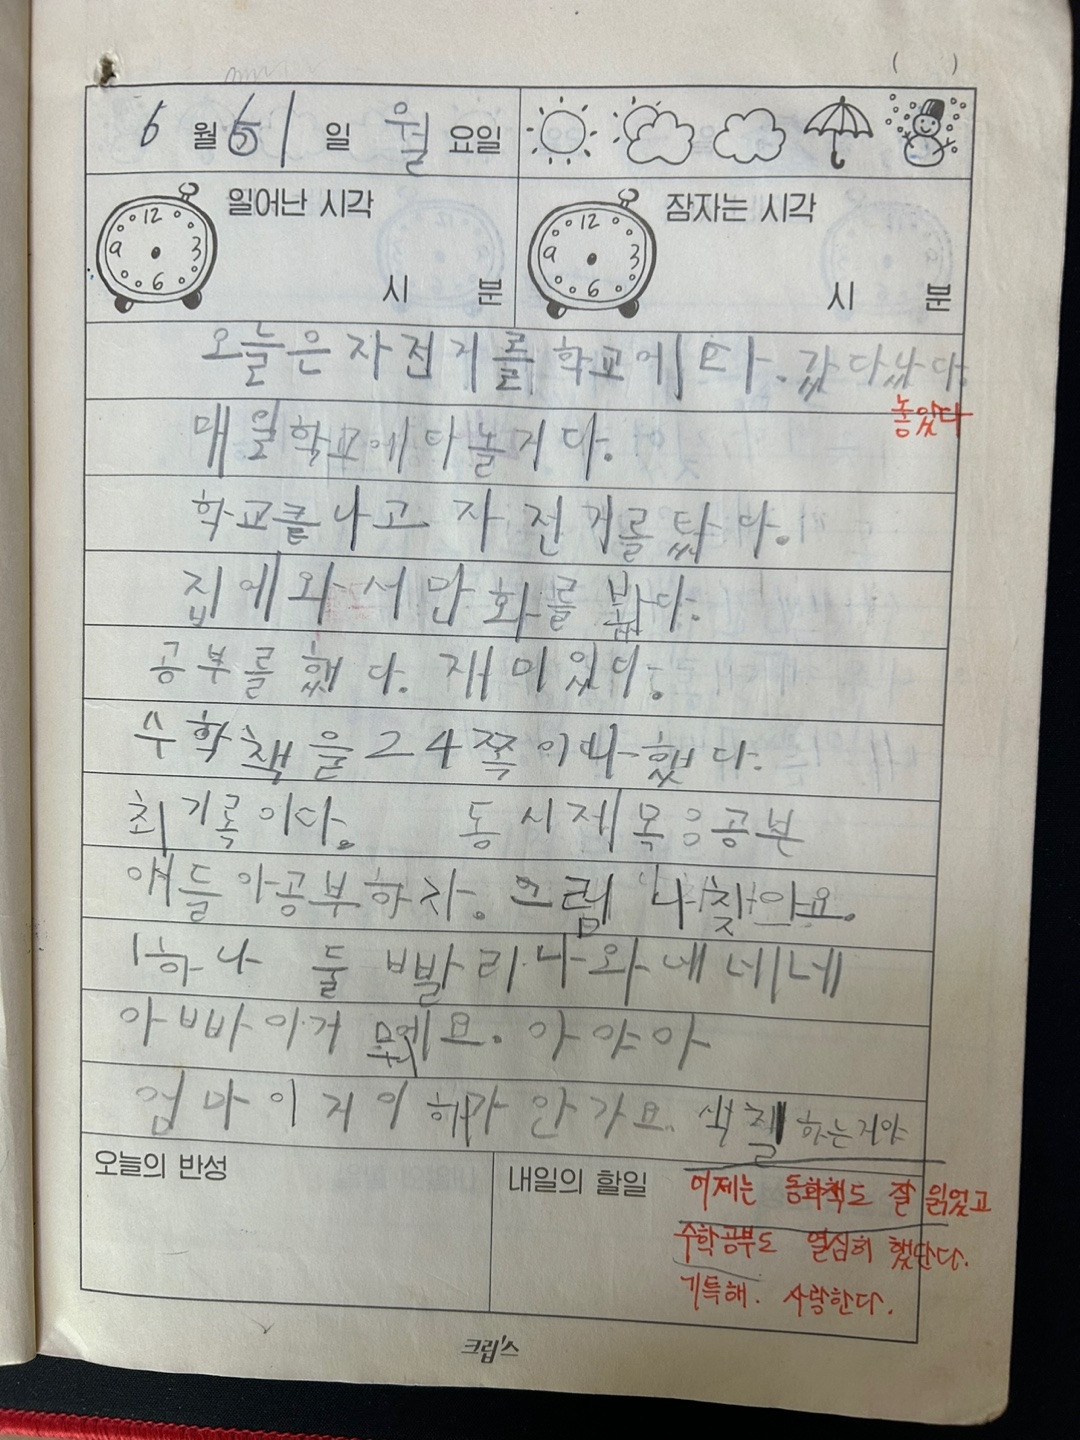 6 월 1 일 월 요일
일어난 시각
12 3 6 9
시 분
잠자는 시각
12 3 6 9
시 분
오늘은 자전거를 학교에 타. 갔다났다.
놓았다
매일학교에타놀거다.
학교끝나고 자전거를 탔다.
집에와서만화를 봤다.
공부를 했다. 재미있다.
수학책을 24쪽이나했다.
최기록이다. 동시제목
얘들아공부하자. 그럼
1하나 둘 빨리나와 네네네
아빠이거 뭐예요. 아야아
엄마이거이 안가요. 색칠하는거야
오늘의 반성
내일의 할일
어제는 동화책도 잘 읽었고
수학공부도 열심히 했단다.
기특해. 사랑한다.
크립'스